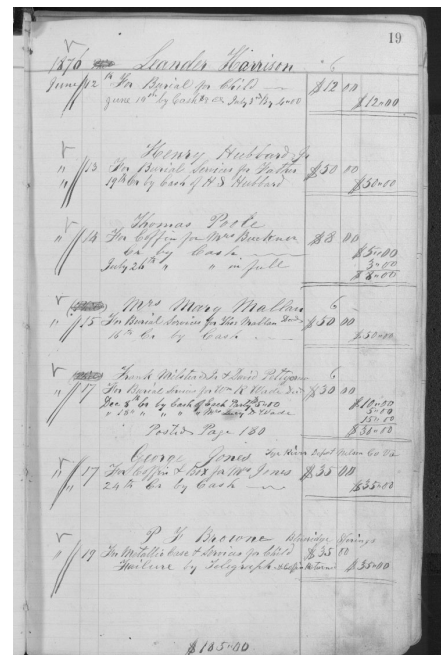 19
1876 Leander Harrison 6
June 12th For Burial for Child $12 00
June 18th by Cash July 3rd By $12=00
Henry Hubbard Jr
" 13 For Burial Services for Father $50 00
" 19th Cr by Cash of H S Hubbard $50=00
Thomas Poole
" 14 For Coffin for Mrs Buckner $8 00
Cr by Cash $5=00
July 24th " " in full 3=00
$8=00
Mrs Mary Mallan 6
" 15 For Burial Services for Thos Mallan $50 00
16th Cr by Cash $50=00
Frank & David 6
" 17 For Burial Services for Wm R Wade $30 00
Dec 8th Cr by Cash of 5=00 $10=00
" 18th " " " by Mrs Wade 5=00
15=00
Posted Page 180 $30=00
George Jones Tye River Depot Nelson Co Va
" 17 For Coffin & Box for Mrs Jones $35 00
24th Cr by Cash $35=00
P F Browne Blueridge Springs
" 19 For Metallic Case & Services for Child $35 00
Failure by Telegraph Return $35=00
$185=00